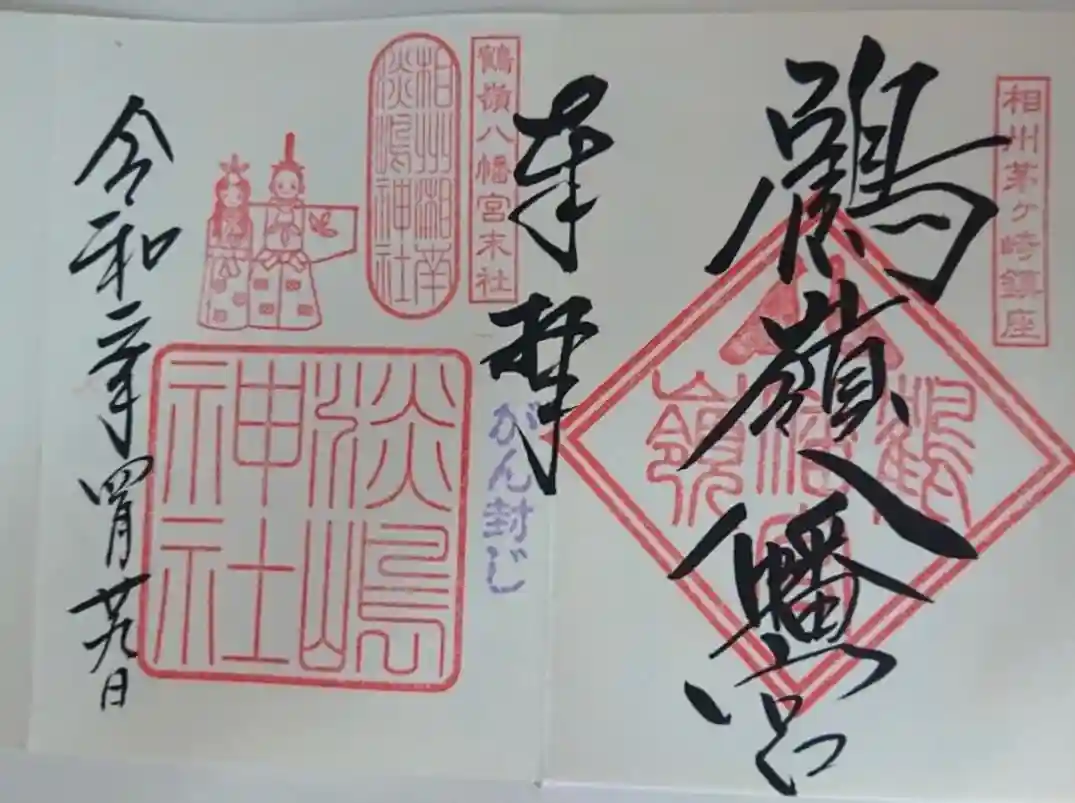 相州茅ヶ崎鎮座
鶴嶺八幡宮
奉拝
鶴嶺八幡宮末社
相州湘南
淡嶋神社
がん封じ
淡嶋
神社
令和二年四月廿九日